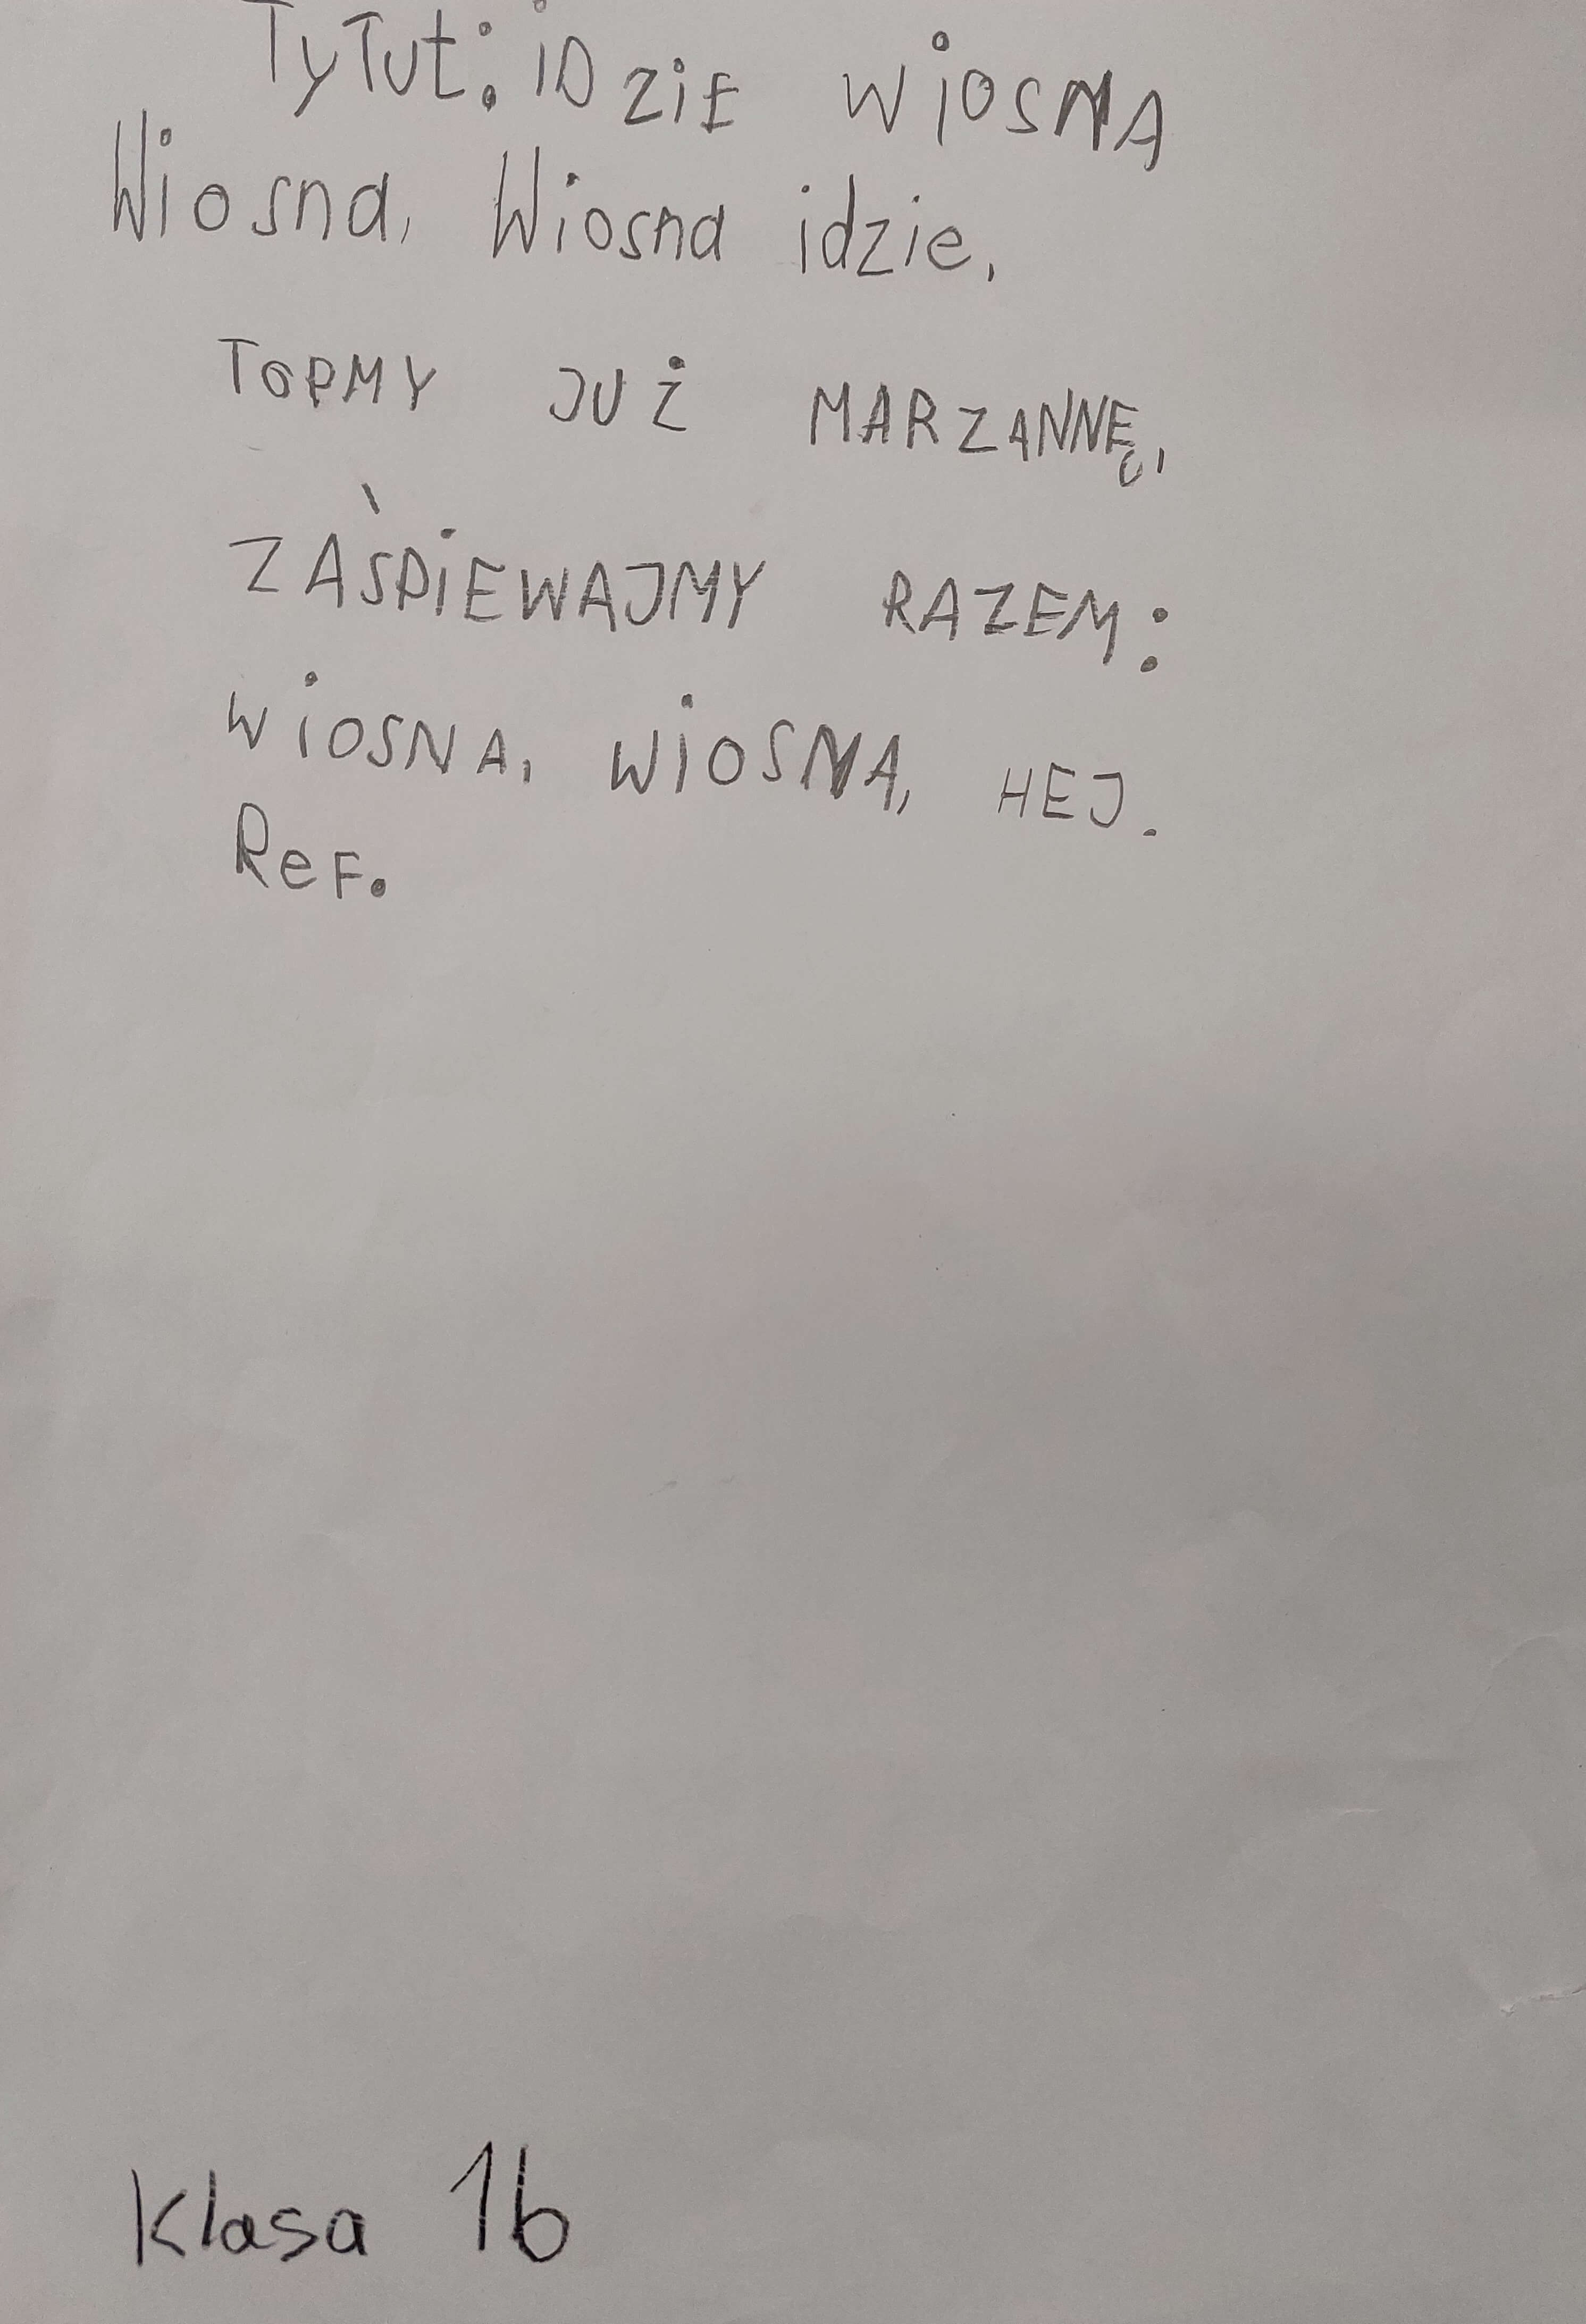 TyTuł: iDziE WiOSNA
Wiosna, Wiosna idzie,
TOPMY JUŻ MARZANNĘ,
ZAŚPiEWAJMY RAZEM:
WiOSNA, WiOSNA, HEJ.
ReF.
Klasa 1b